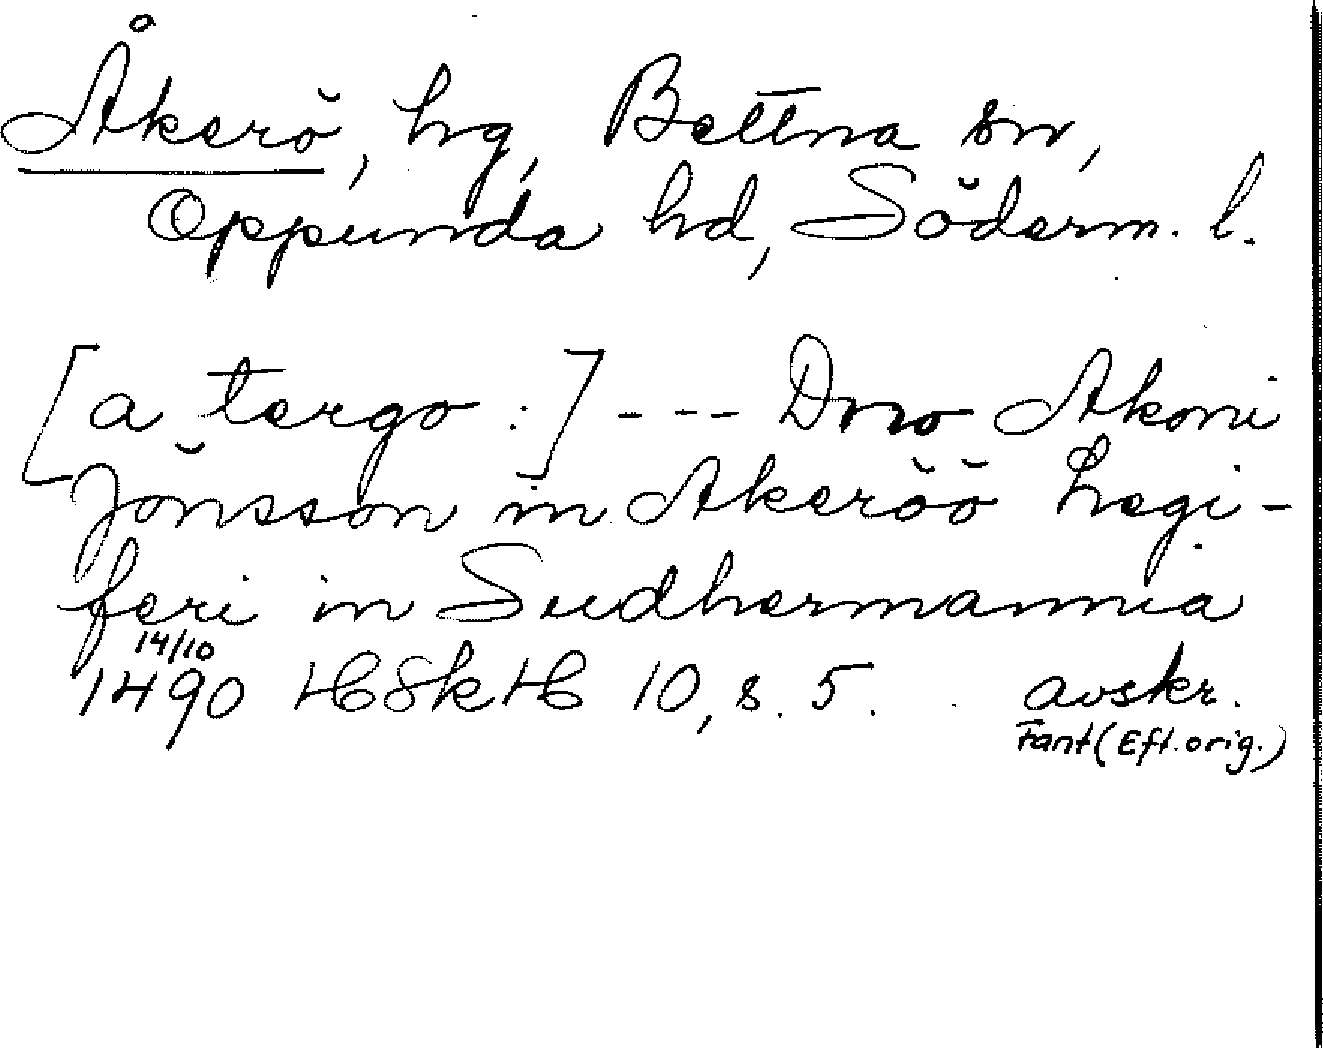 Åkerö, hg, Bettna sn,
Oppunda hd, Söderm. l.
[a tergo :] --- Dno Akoni
Jönsson in Akeröö Legi-
feri in Sudhermannia
14/10
1490 HSkH 10, s. 5. avskr.
Fant (Eft. orig.)